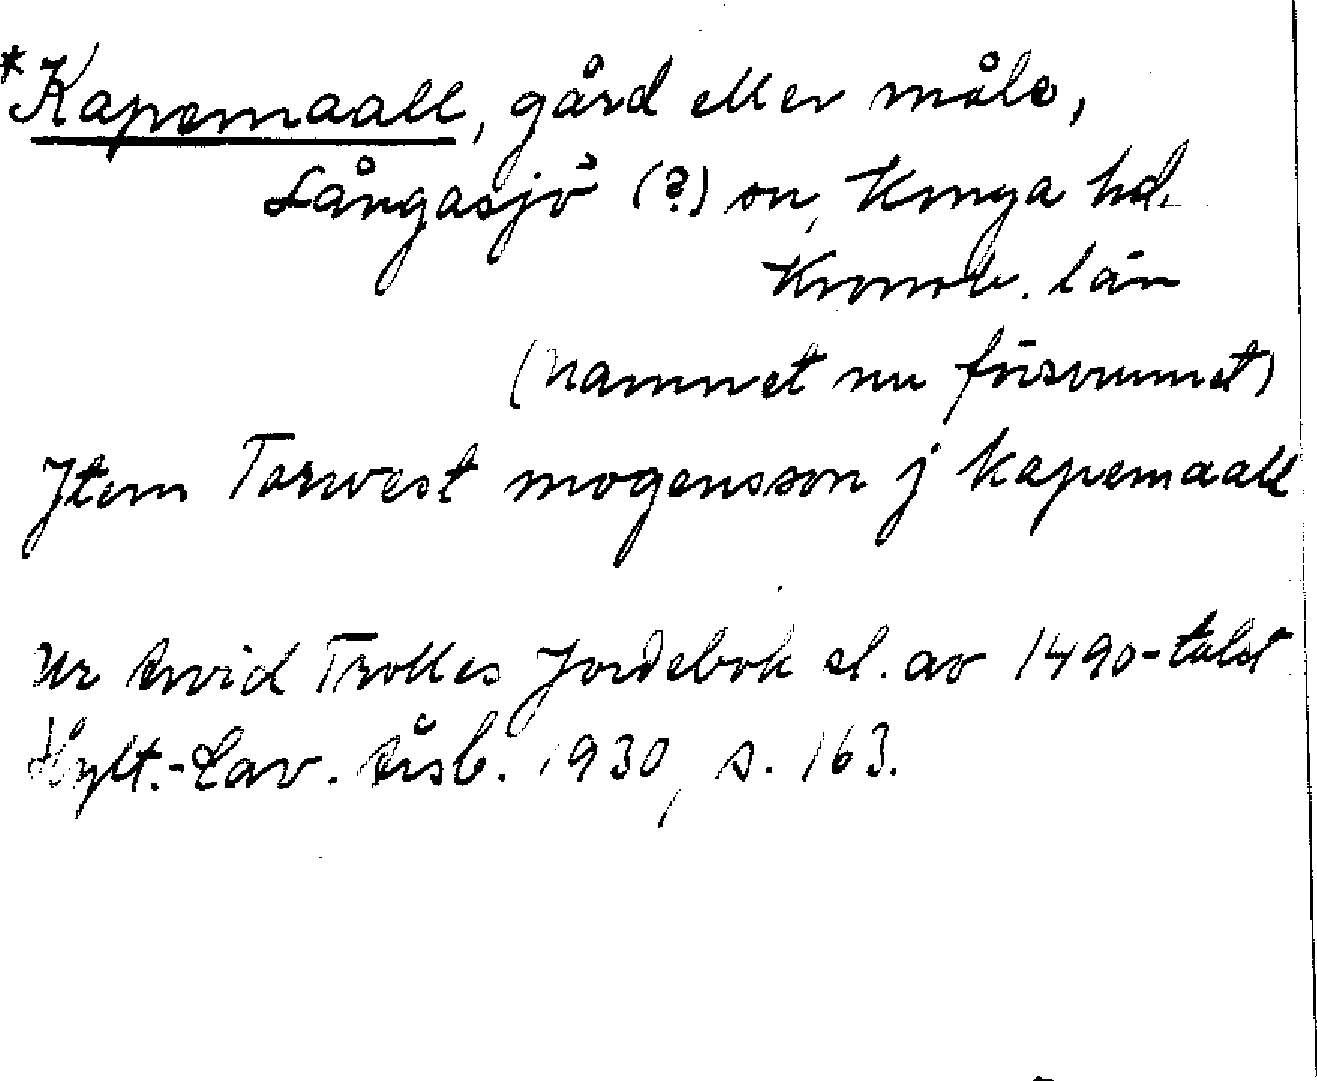 *Kapemaall, gård eller måle,
Långasjö (?) sn, Konga hd.
Kronob. län
(namnet nu försvunnet)
Jtem Torwest mogensson j kapemaall
Ur Arvid Trolles Jordebok sl. av 1490-talet
Hylt.-Cav. Årsb. 1930, s. 163.